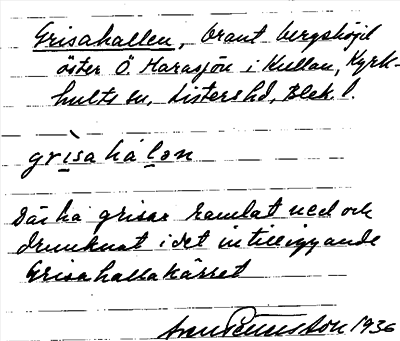 Grisahallen, brant bergshöjd
öster Ö. Harasjön i Kullan, Kyrk-
hults sn, Listers hd, Blek. l.
grìsahálən
Där ha grisar ramlat ned och
drunknat i det intilliggande
Grisahallakärret
1936